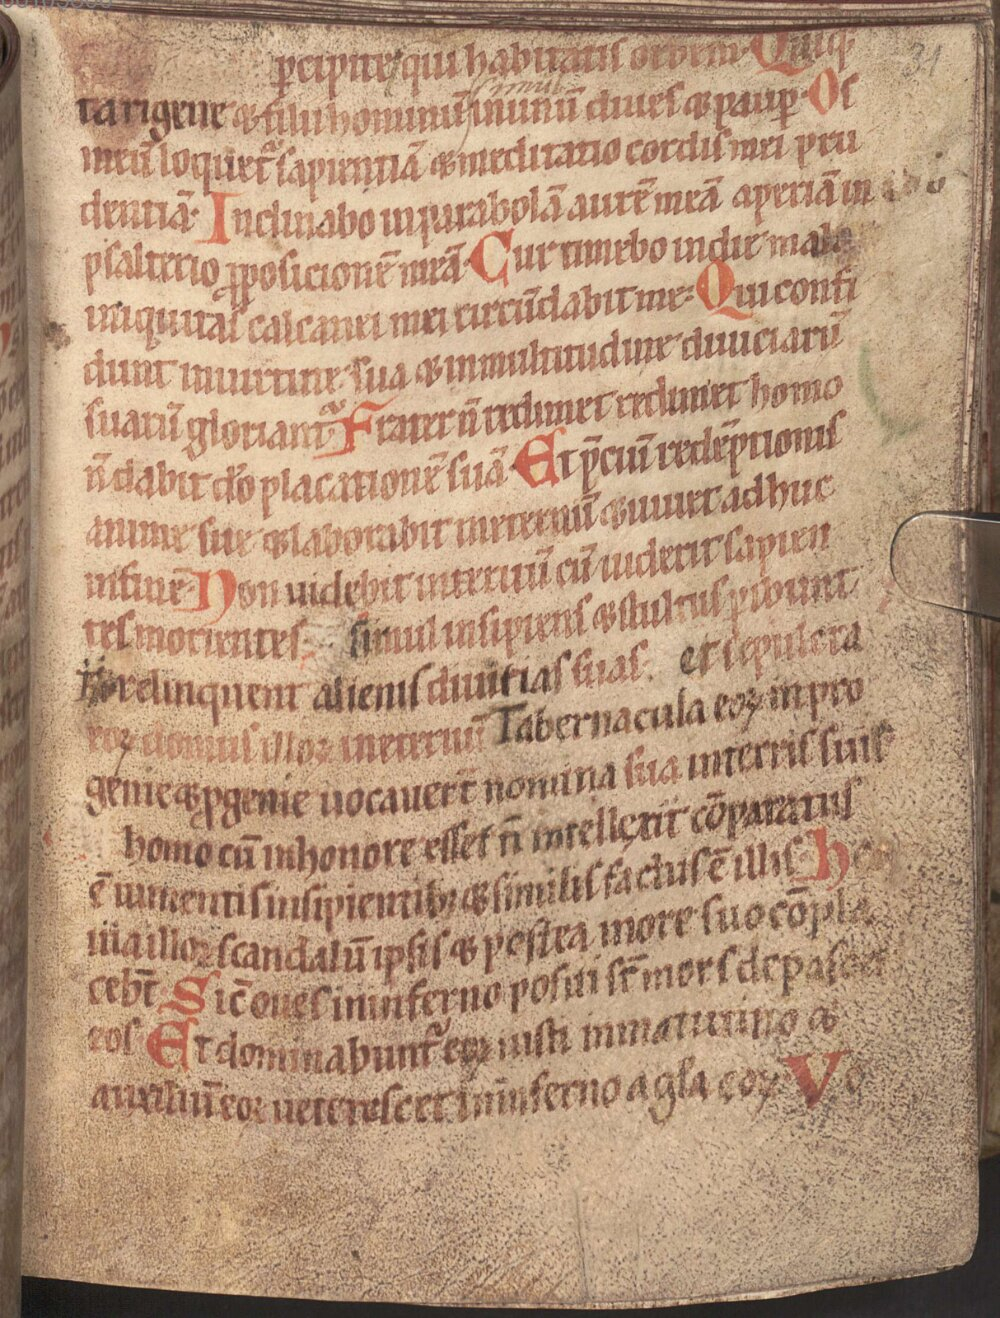 31
ꝑcipite qui habitatis orbem Quiq
simul
tarigene & filii hominū inunū diues & paup Os
meū loquet sapientiā & meditatio cordis mei pru
dentiā Inclinabo inparabolā aurē meā aperiā in
psalterio ꝓposicionē meā Cur timebo indie mala
iniquitas calcanei mei circūdabit me Qui confi
dunt inuirtute sua & inmultitudine diuiciarū
suarū gloriant Frater n̄ redimet redimet homo
n̄ dabit dō placationē suā Et p̄ciū redēptionis
anime sue & laborabit ineternū & uiuet adhuc
infine Non uidebit interitū cū uiderit sapien
tes morientes simul insipiens & stultus ꝑibunt
relinquent alienis diuitias suas et sepulcra
eoꝝ domus illoꝝ ineternū Tabernacula eoꝝ inpro
genie & ꝓgenie uocauert̄ nomina sua interris suis
homo cū inhonore esset n̄ intellexit cōparatus
ē iumentis insipientibꝫ & similis factus ē illis Hec
uia illoꝝ scandalū ipsis & postea inore suo cōpla
cebt̄ Sic̄ oues ininferno positi st̄ mors depascet
eos Et dominabunt eoꝝ iusti inmatutino &
auxiliū eoꝝ ueterescet ininferno a gl̄a eoꝝ Ve